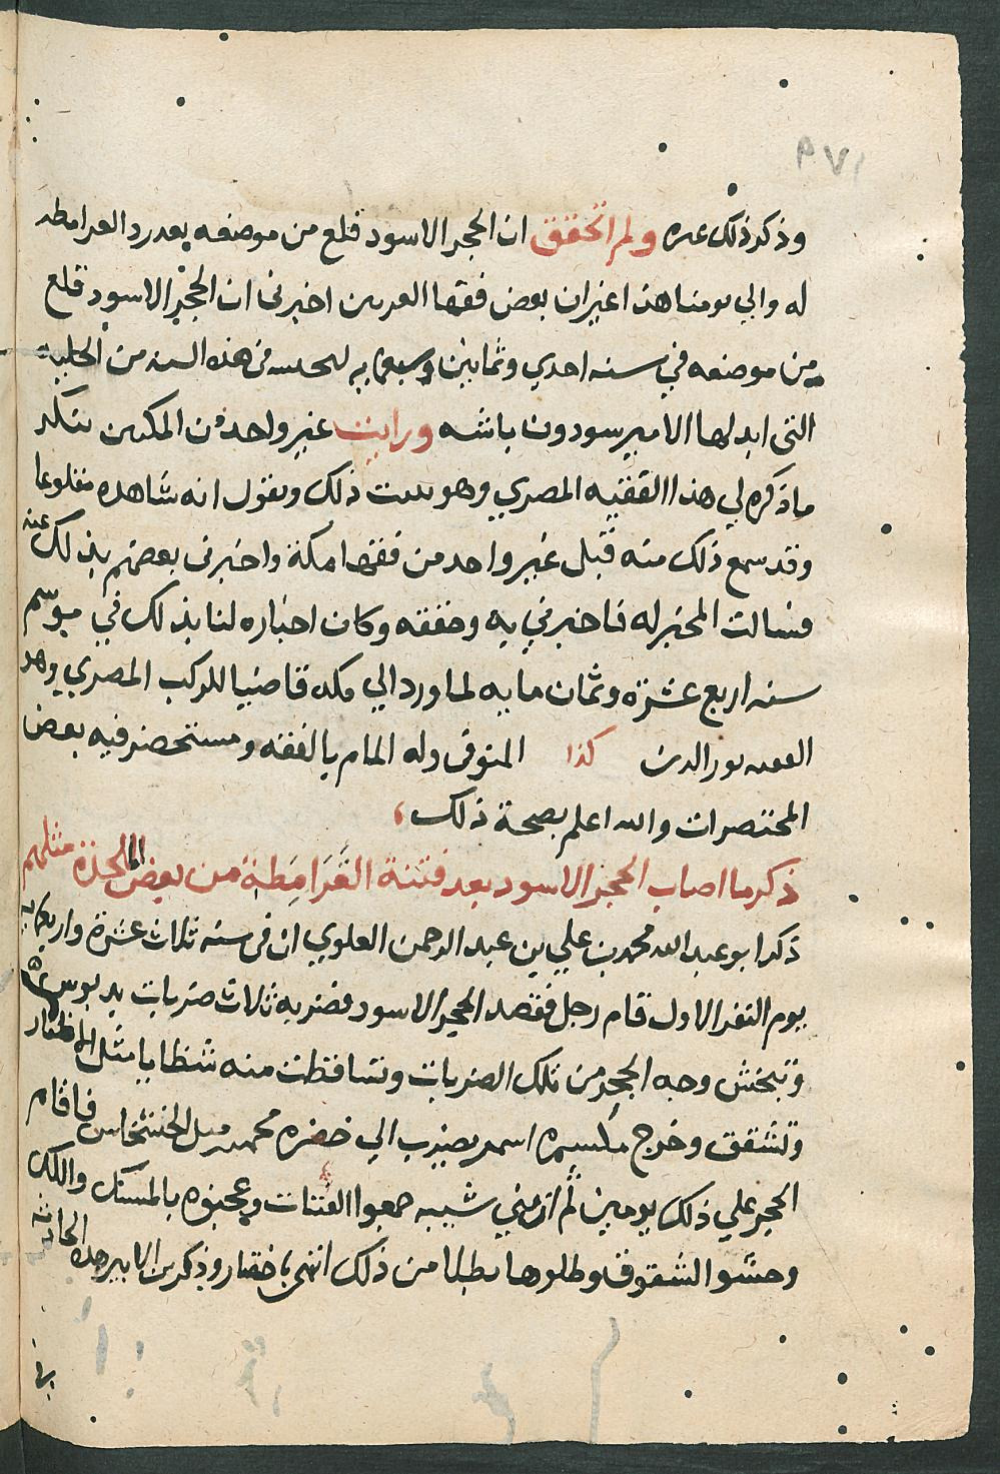 وذكر ذلك غيره ولم اتحقق ان الحجر الاسود قلع من موضعه بعد رد القرامطه
له والي يومنا هذا غير ان بعض فقها اخبرني ان الحجر الاسود قلع
من موضعه في سنه احدي وثمانين وسبعمايه في هذه السنه من الحليه
التي ابدلها الامير سودون باشه ورايت غير واحد من المكيين ينكر
ما ذكره لي هذا الفقيه المصري وهو يثبت ذلك ويقول انه شاهده مقلوعا
وقد سمع ذلك منه قبل غير واحد من فقها مكة واخبرني بعضهم بذلك عنه
فسالت المخبر له فاخبرني به وحققه وكان اخباره لنا بذلك في موسم
سنه اربع عشرة وثمان مايه لما ورد الي مكه قاضيا للركب المصري وهو
الفقيه نور الدين كذا المنوفي وله المام بالفقه ومستحضر فيه بعض
المختصرات والله اعلم بصحة ذلك
ذكر ما اصاب الحجر الاسود بعد فتنة القَرَامِطة من بعض الملحدة مثلهم
ذكر ابو عبد الله محمد بن علي بن عبد الرحمن العلوي ان في سنه ثلاث عشرة واربعمايه
يوم النفر الاول قام رجل فقصد الحجر الاسود فضربه ثلاث ضربات بدبوس
وتبخش وجه الحجر من تلك الضربات وتساقطت منه شظايا مثل الاظفار
وتشقق وخرج مكسره اسمر يضرب الي صفره محبب مثل الخشخاش فاقام
الحجر علي ذلك يومين ثم ان بني شيبه جمعوا الفتات وعجنوه بالمسك واللك
وحشوا الشقوق وطلوها بطلا من ذلك انتهي باختصار وذكر بن الاثير هذه الحادثه
في